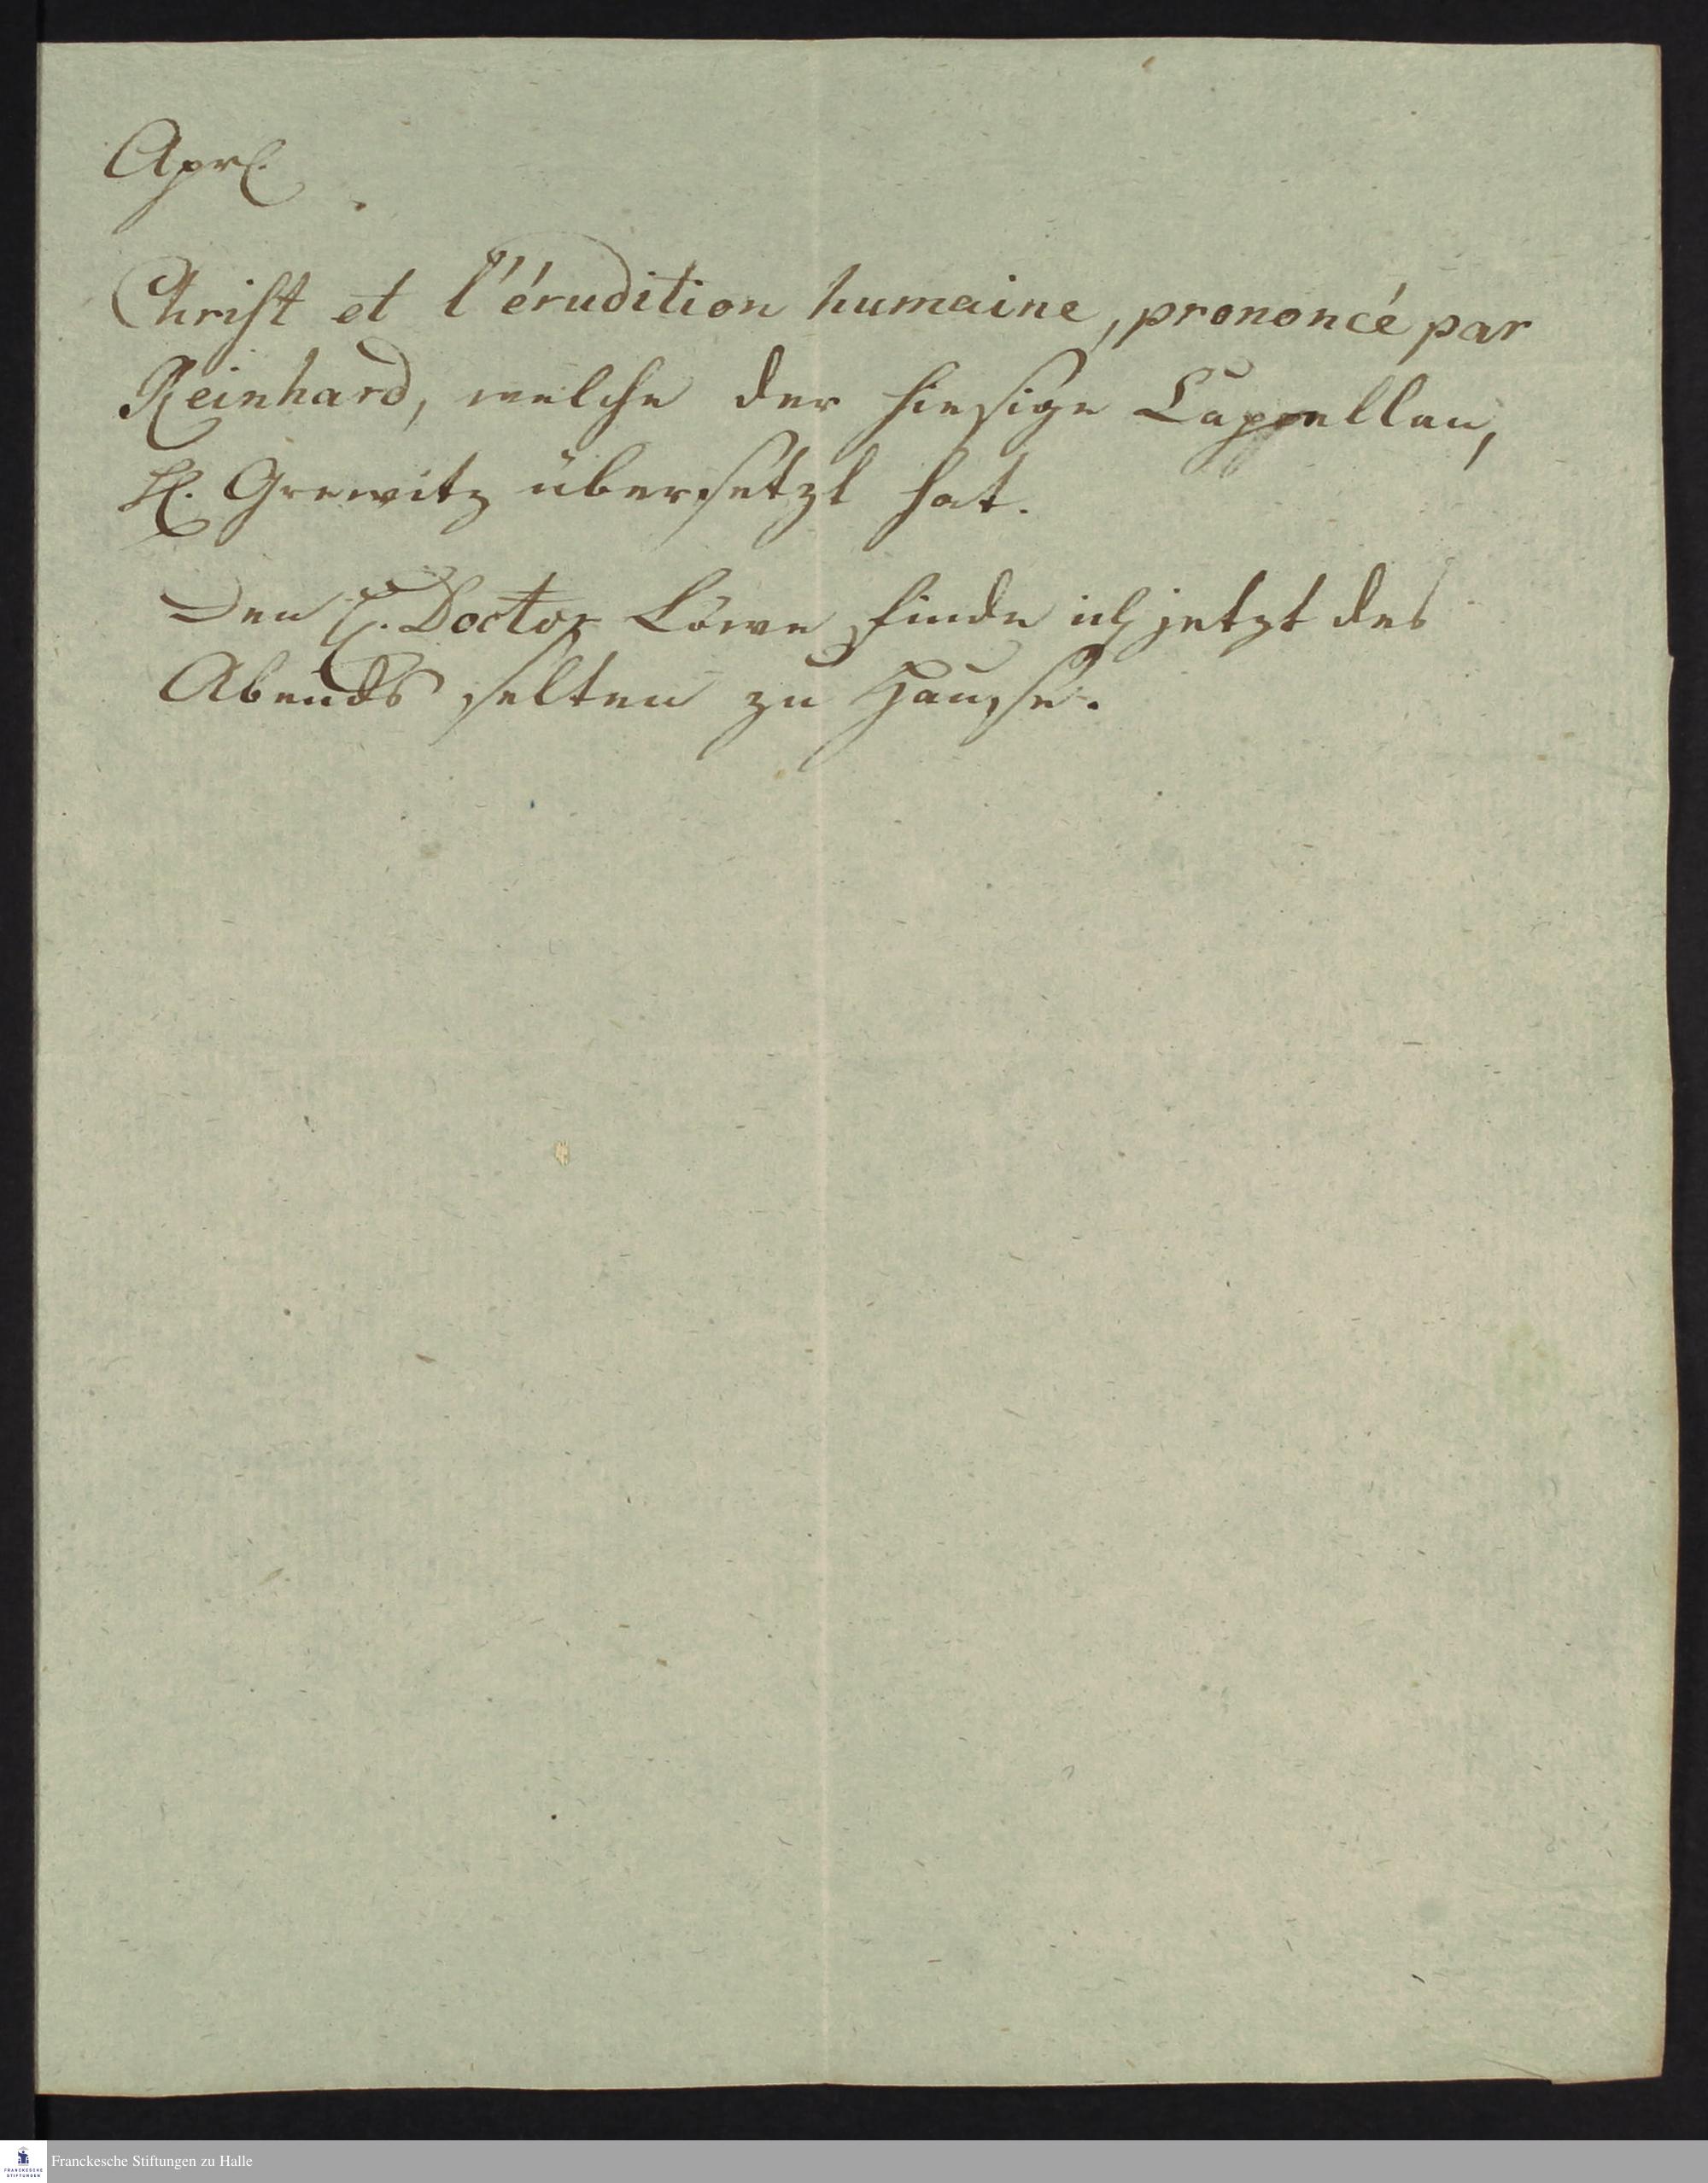 Aprl.
Christ et l'érudition humaine, prononcé par
Reinhard, welche der hiesige Cappellan,
H. Grewitz übersetzt hat.
Den H. Doctor Löwe finde ich jetzt des
Abends selten zu Hause.
Franckesche Stiftungen zu Halle
FRANCKESCHE
STIFTUNGEN